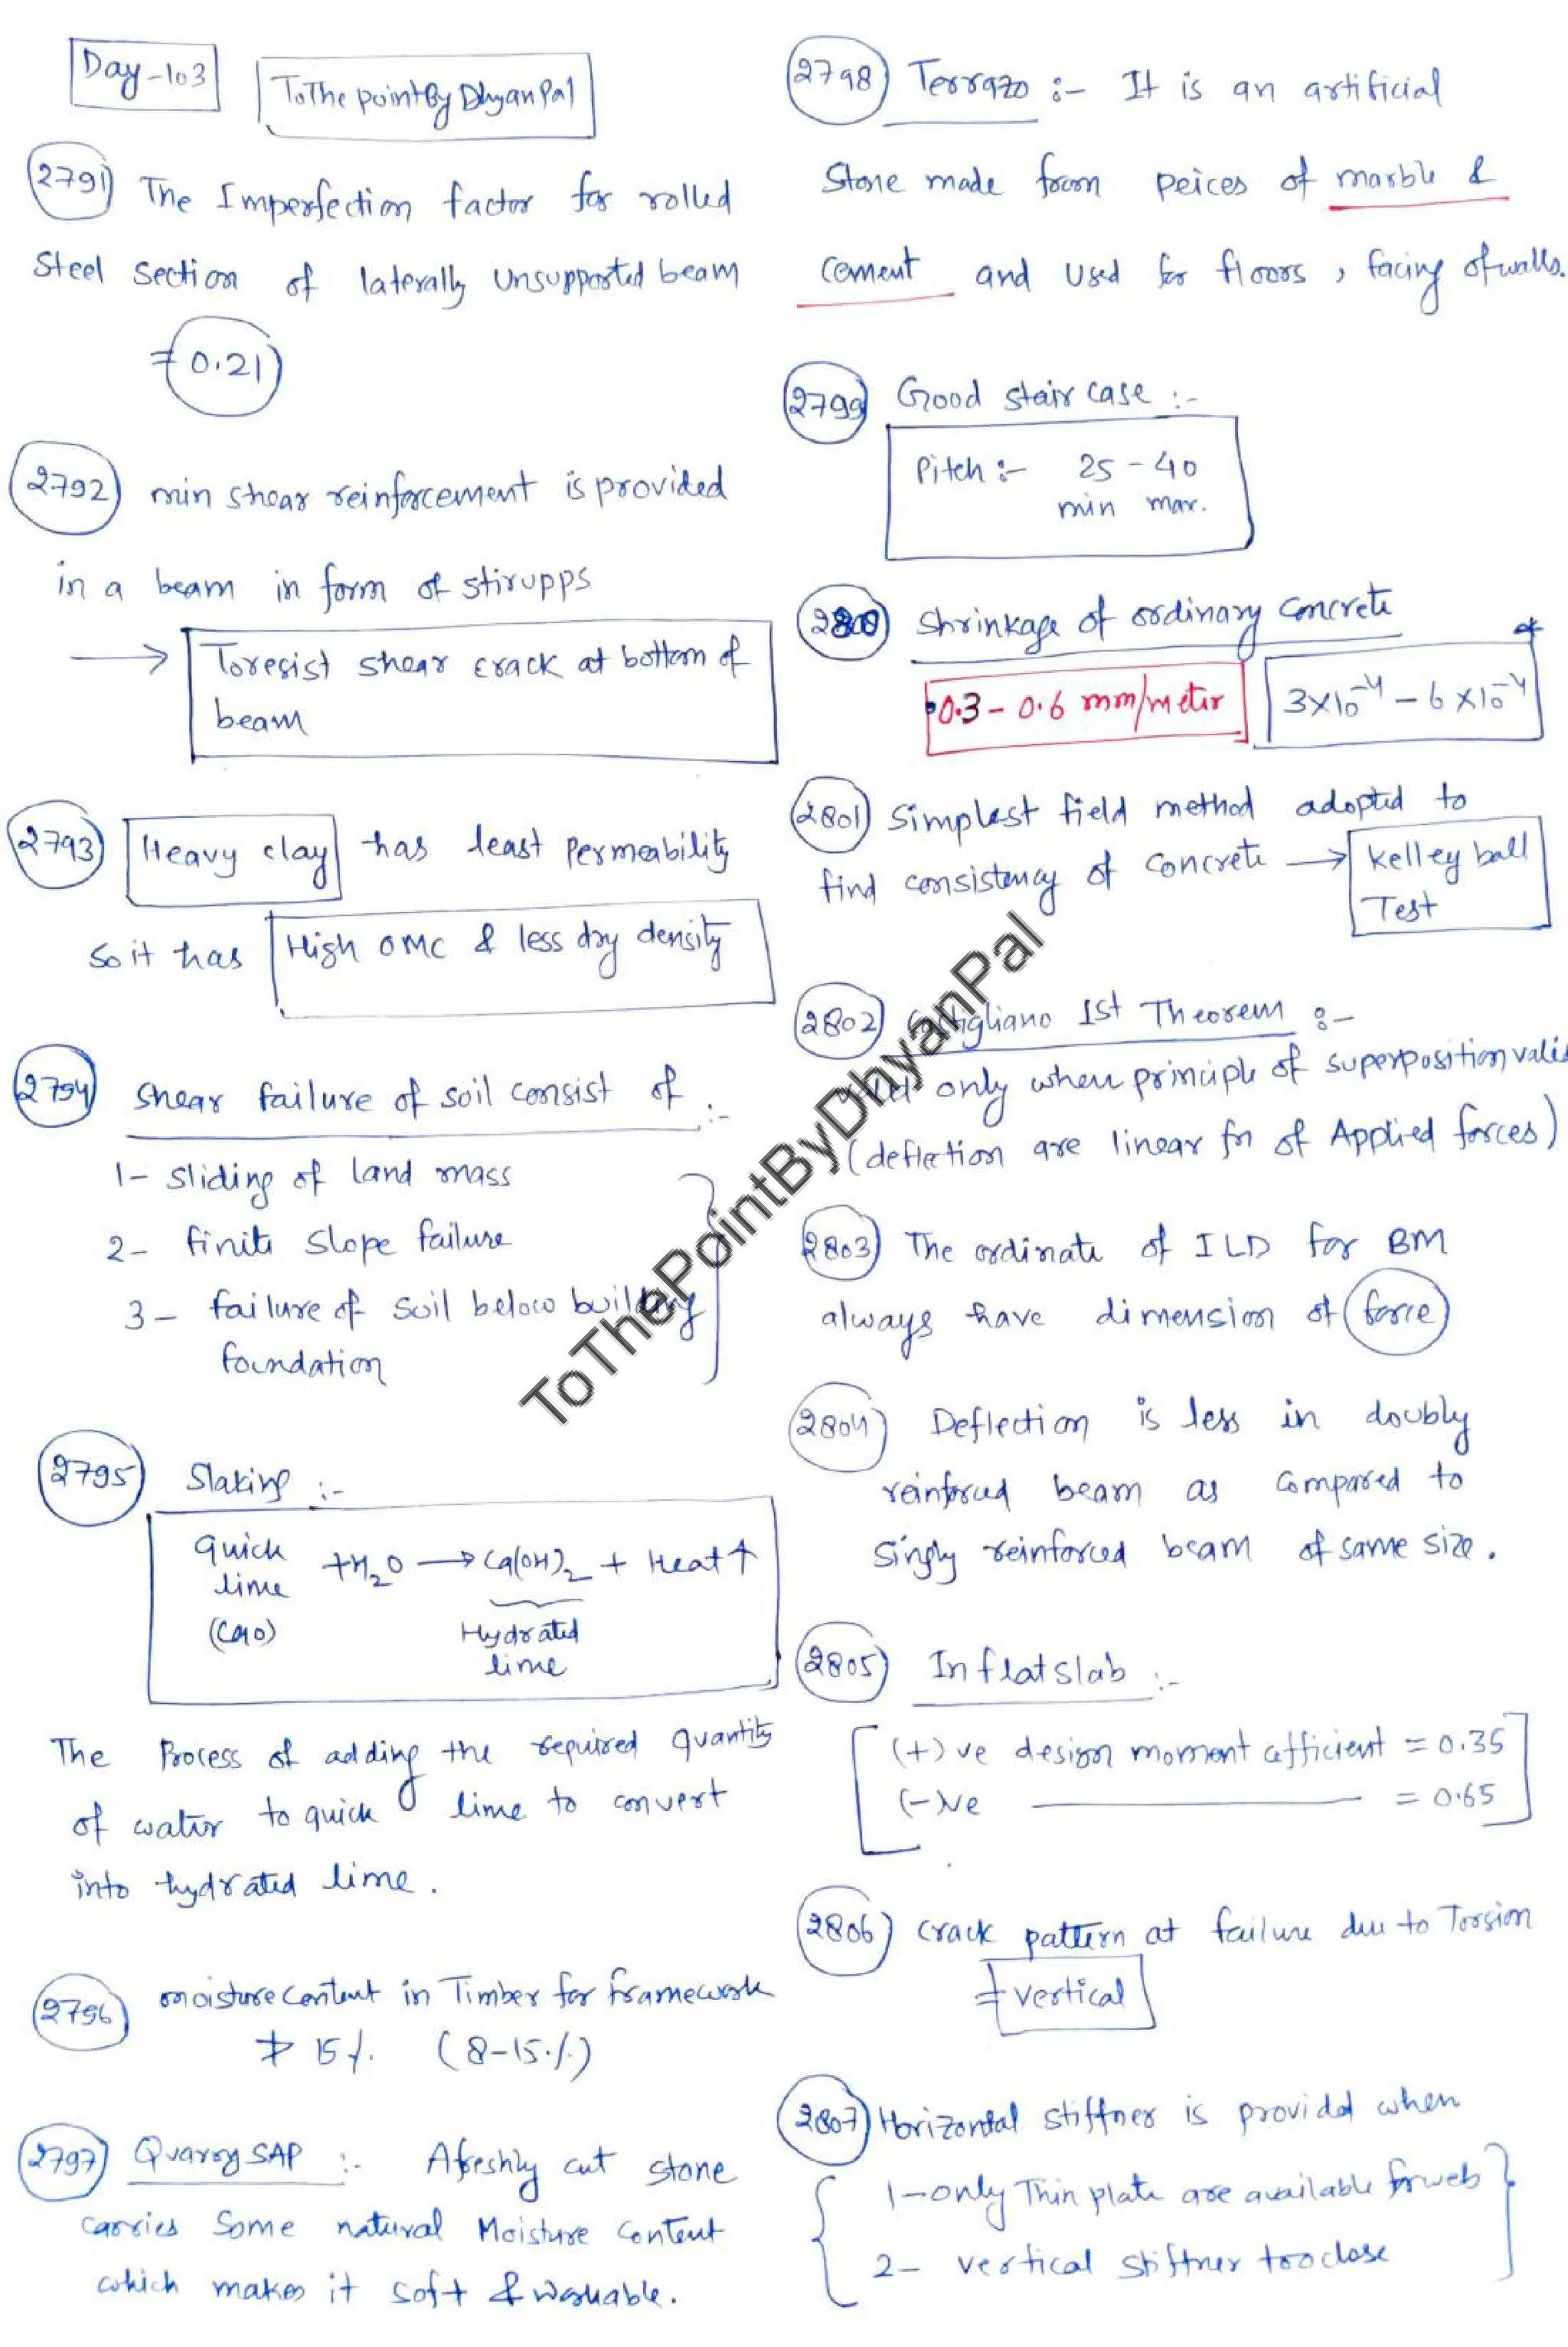 Day-103
ToThe pointBy DhyanPal
2791 The Imperfection factor for rolled
Steel Section of laterally Unsupported beam
= 0.21
2792 min shear reinforcement is provided
in a beam in form of stirupps
→ To resist shear crack at bottom of
beam
2793 Heavy clay has least permeability
So it has High OMC & less dry density
2794 Shear failure of soil consist of :-
1- Sliding of land mass
2- finite slope failure
3- failure of soil below building
foundation
2795 Slaking :-
Quick +H₂O → Ca(OH)₂ + Heat↑
lime
(CaO) Hydrated
lime
The Process of adding the required quantity
of water to quick lime to convert
into hydrated lime.
2796 moisture content in Timber for framework
≯ 15%. (8-15%)
2797 Quarry SAP :- A freshly cut stone
carries Some natural Moisture Content
which makes it soft & workable.
2798 Terrazo :- It is an artificial
Stone made from peices of marble &
cement and used for floors, facing of walls.
2799 Good stair case :-
Pitch :- 25 - 40
min max.
2800 Shrinkage of ordinary concrete
0.3 - 0.6 mm/meter 3×10⁻⁴ - 6×10⁻⁴ *
2801 Simplest field method adopted to
find consistency of concrete → Kelley ball
Test
2802 Castigliano Ist Theorem :-
valid only when principle of superposition valid
(deflection are linear fn of Applied forces)
2803 The ordinate of ILD for BM
always have dimension of force
2804 Deflection is less in doubly
reinforced beam as compared to
Singly reinforced beam of same size.
2805 In flat slab :-
(+)ve design moment cofficient = 0.35
(-)ve ——— = 0.65
2806 Crack pattern at failure due to Torsion
= vertical
2807 Horizontal stiffner is provided when
1- only Thin plate are available for web
2- vertical stiffner too close
ToThePointByDhyanPal